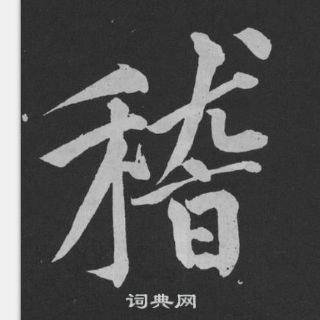 稽
词典网